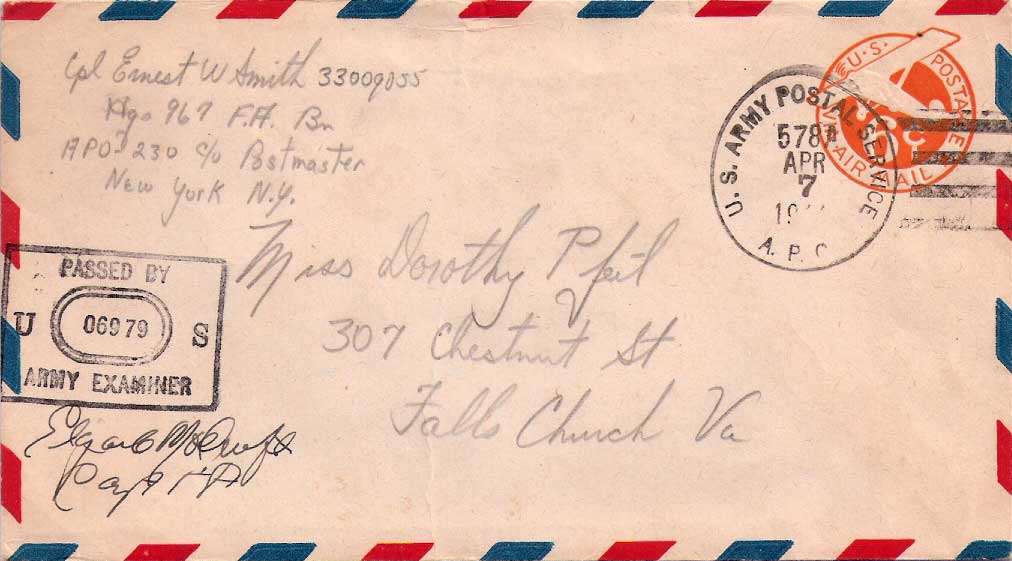 Cpl Ernest W Smith 33009055
Hqs 967 F.A. Bn
APO 230 c/o Postmaster
New York N.Y.
U.S. ARMY POSTAL SERVICE
578
APR
7
A.P.O.
U.S. POSTAGE
VIA AIR MAIL
6
Miss Dorothy Pfeil
307 Chestnut St
Falls Church Va
PASSED BY
U 06979 S
ARMY EXAMINER
Capt FA